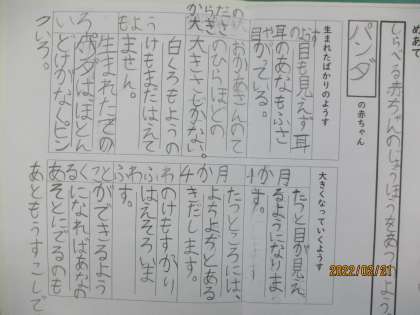 めあて
しらべる赤ちゃんのじょうほうをあつめよう
パンダ
の赤ちゃん
生まれたばかりのようす
お目も見えず耳
耳のあなもふさ
がっている。
おかあさんのて
のひらほどの
大きさしかない。
白くろもようの
けもまだはえて
もよう
ません。
生まれたての
パンダはほとん
どけがなくピン
いろ。
大きくなっていくようす
1か月
たつと目が見え
るようになりま
す。
4か月
たつころには、
ようよちとある
きだします。
のけもすがり
ふわふわ
はえそろいま
す。
ことができるよう
になればあかの
あそとにでるのも
あともうすこしで
2022/02/21